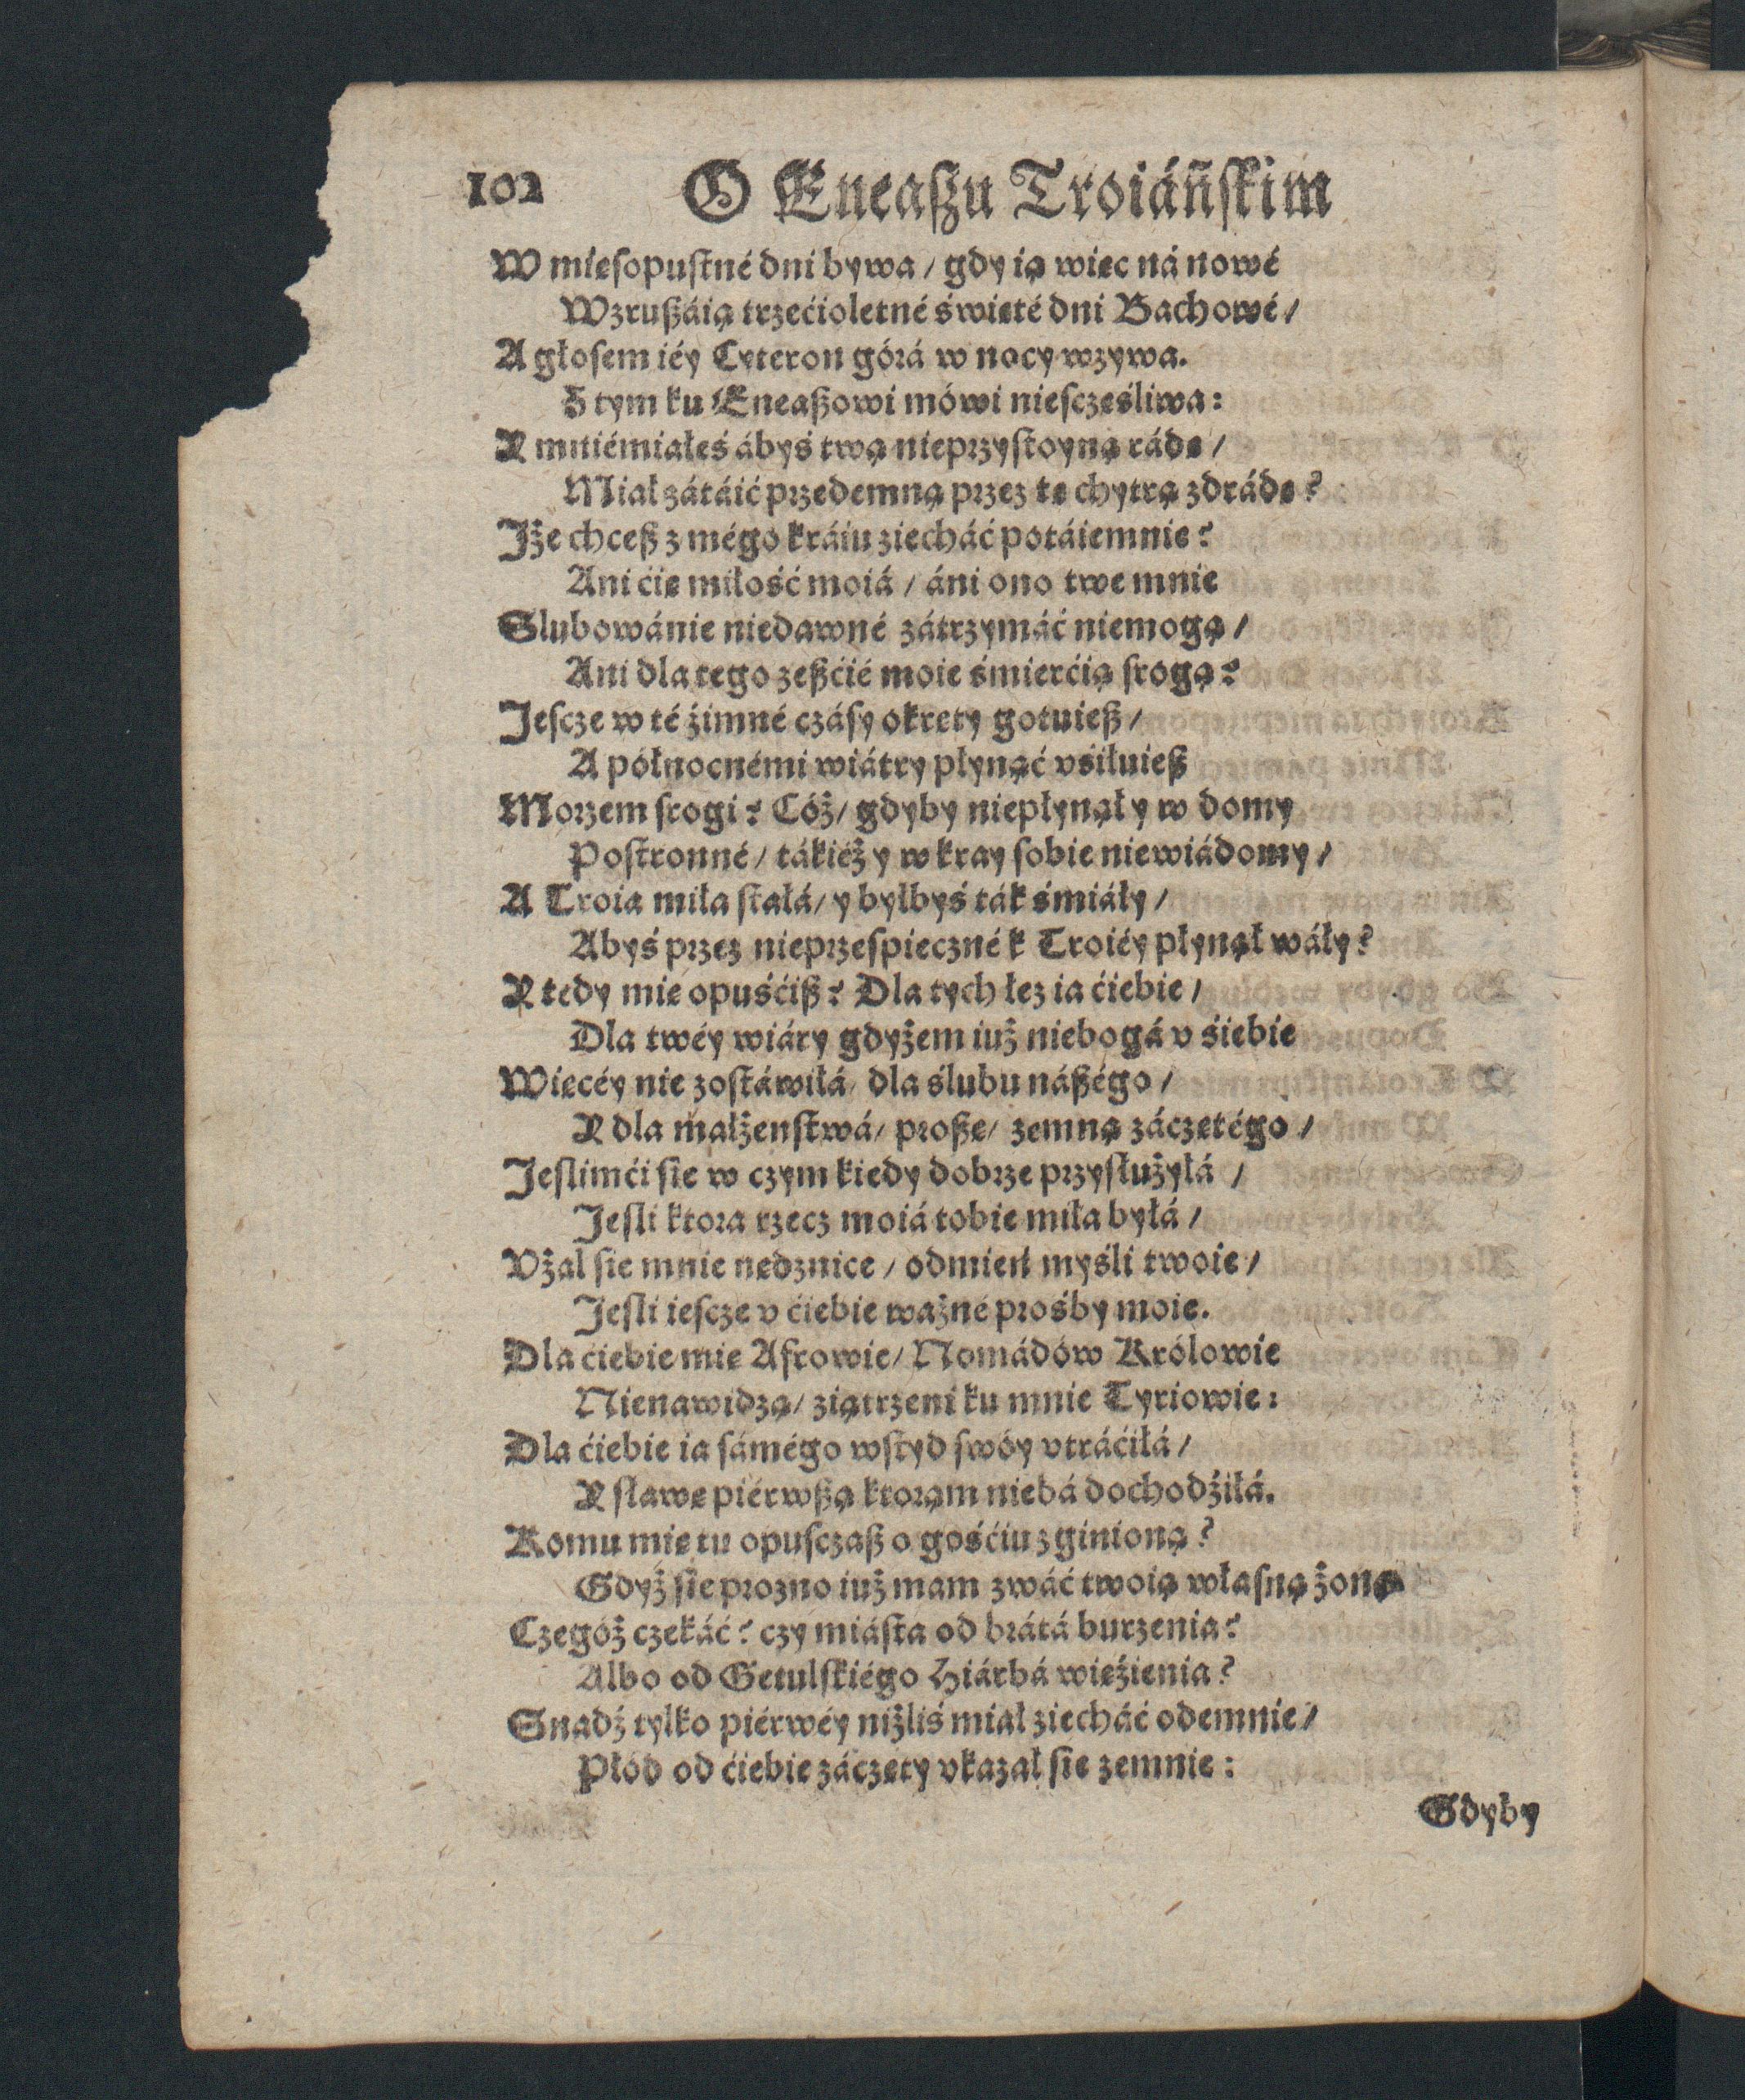 102 O Eneaſzu Troiáńſkim
W mięſopuſtné dni bywa / gdy ią więc ná nowé
Wzrußáią trzećioletné święté dni Bachowé /
A głoſem iéy Cyteron górá w nocy wzywa.
Z tym ku Eneaßowi mówi nieſczęśliwa:
Y mniémiałeś ábyś twą nieprzyſtoyną rádę /
Miał zátáić przedemną przez tę chytrą zdrádę?
Iże chceß z mégo kráiu ziecháć potáiemnie?
Ani ćię miłość moiá / áni ono twe mnie
Slubowánie niedawné zátrzymáć niemogą /
Ani dla tego zeßćié moie śmierćią ſrogą?
Jeſcze w té źimné czáſy okręty gotuieß /
A północnémi wiátry płynąć vśiłuieß
Morzem ſrogi? Cóż / gdyby niepłynąły w domy
Poſtronné / tákiéż y w kray ſobie niewiádomy /
A Troia miła ſtałá / y byłbyś ták śmiáły /
Abyś przez nieprzeſpieczné k Troiéy płynął wáły?
Y tedy mię opuśćiß? Dla tych łez ia ćiebie /
Dla twéy wiáry gdyżem iuż niebogá v śiebie
Więcéy nie zoſtáwiłá / dla ślubu náßégo /
Y dla małżenſtwá / proßę / zemną záczętégo /
Jeſlimći ſię w czym kiedy dobrze przyſłużyłá /
Jeſli ktora rzecz moiá tobie miła byłá /
Vżal ſię mnie nędznice / odmień myśli twoie /
Jeſli ieſcze v ćiebie ważné prośby moie.
Dla ćiebie mię Afrowie / Nomádów Królowie
Nienawidzą / ziątrzeni ku mnie Tyriowie:
Dla ćiebie ia ſámégo wſtyd ſwóy vtráćiłá /
Y ſławę piérwßą ktorąm niebá dochodźiłá.
Komu mię tu opuſczaß o gośćiu zginioną?
Gdyż ſię prozno iuż mam zwáć twoią własną żoną
Czegóż czekáć? czy miáſta od brátá burzenia?
Albo od Getulſkiégo Hiárbá więźienia?
Snadź tylko piérwéy niżliś miał ziecháć odemnie /
Płód od ćiebie záczęty vkazał ſię zemnie:
Gdyby